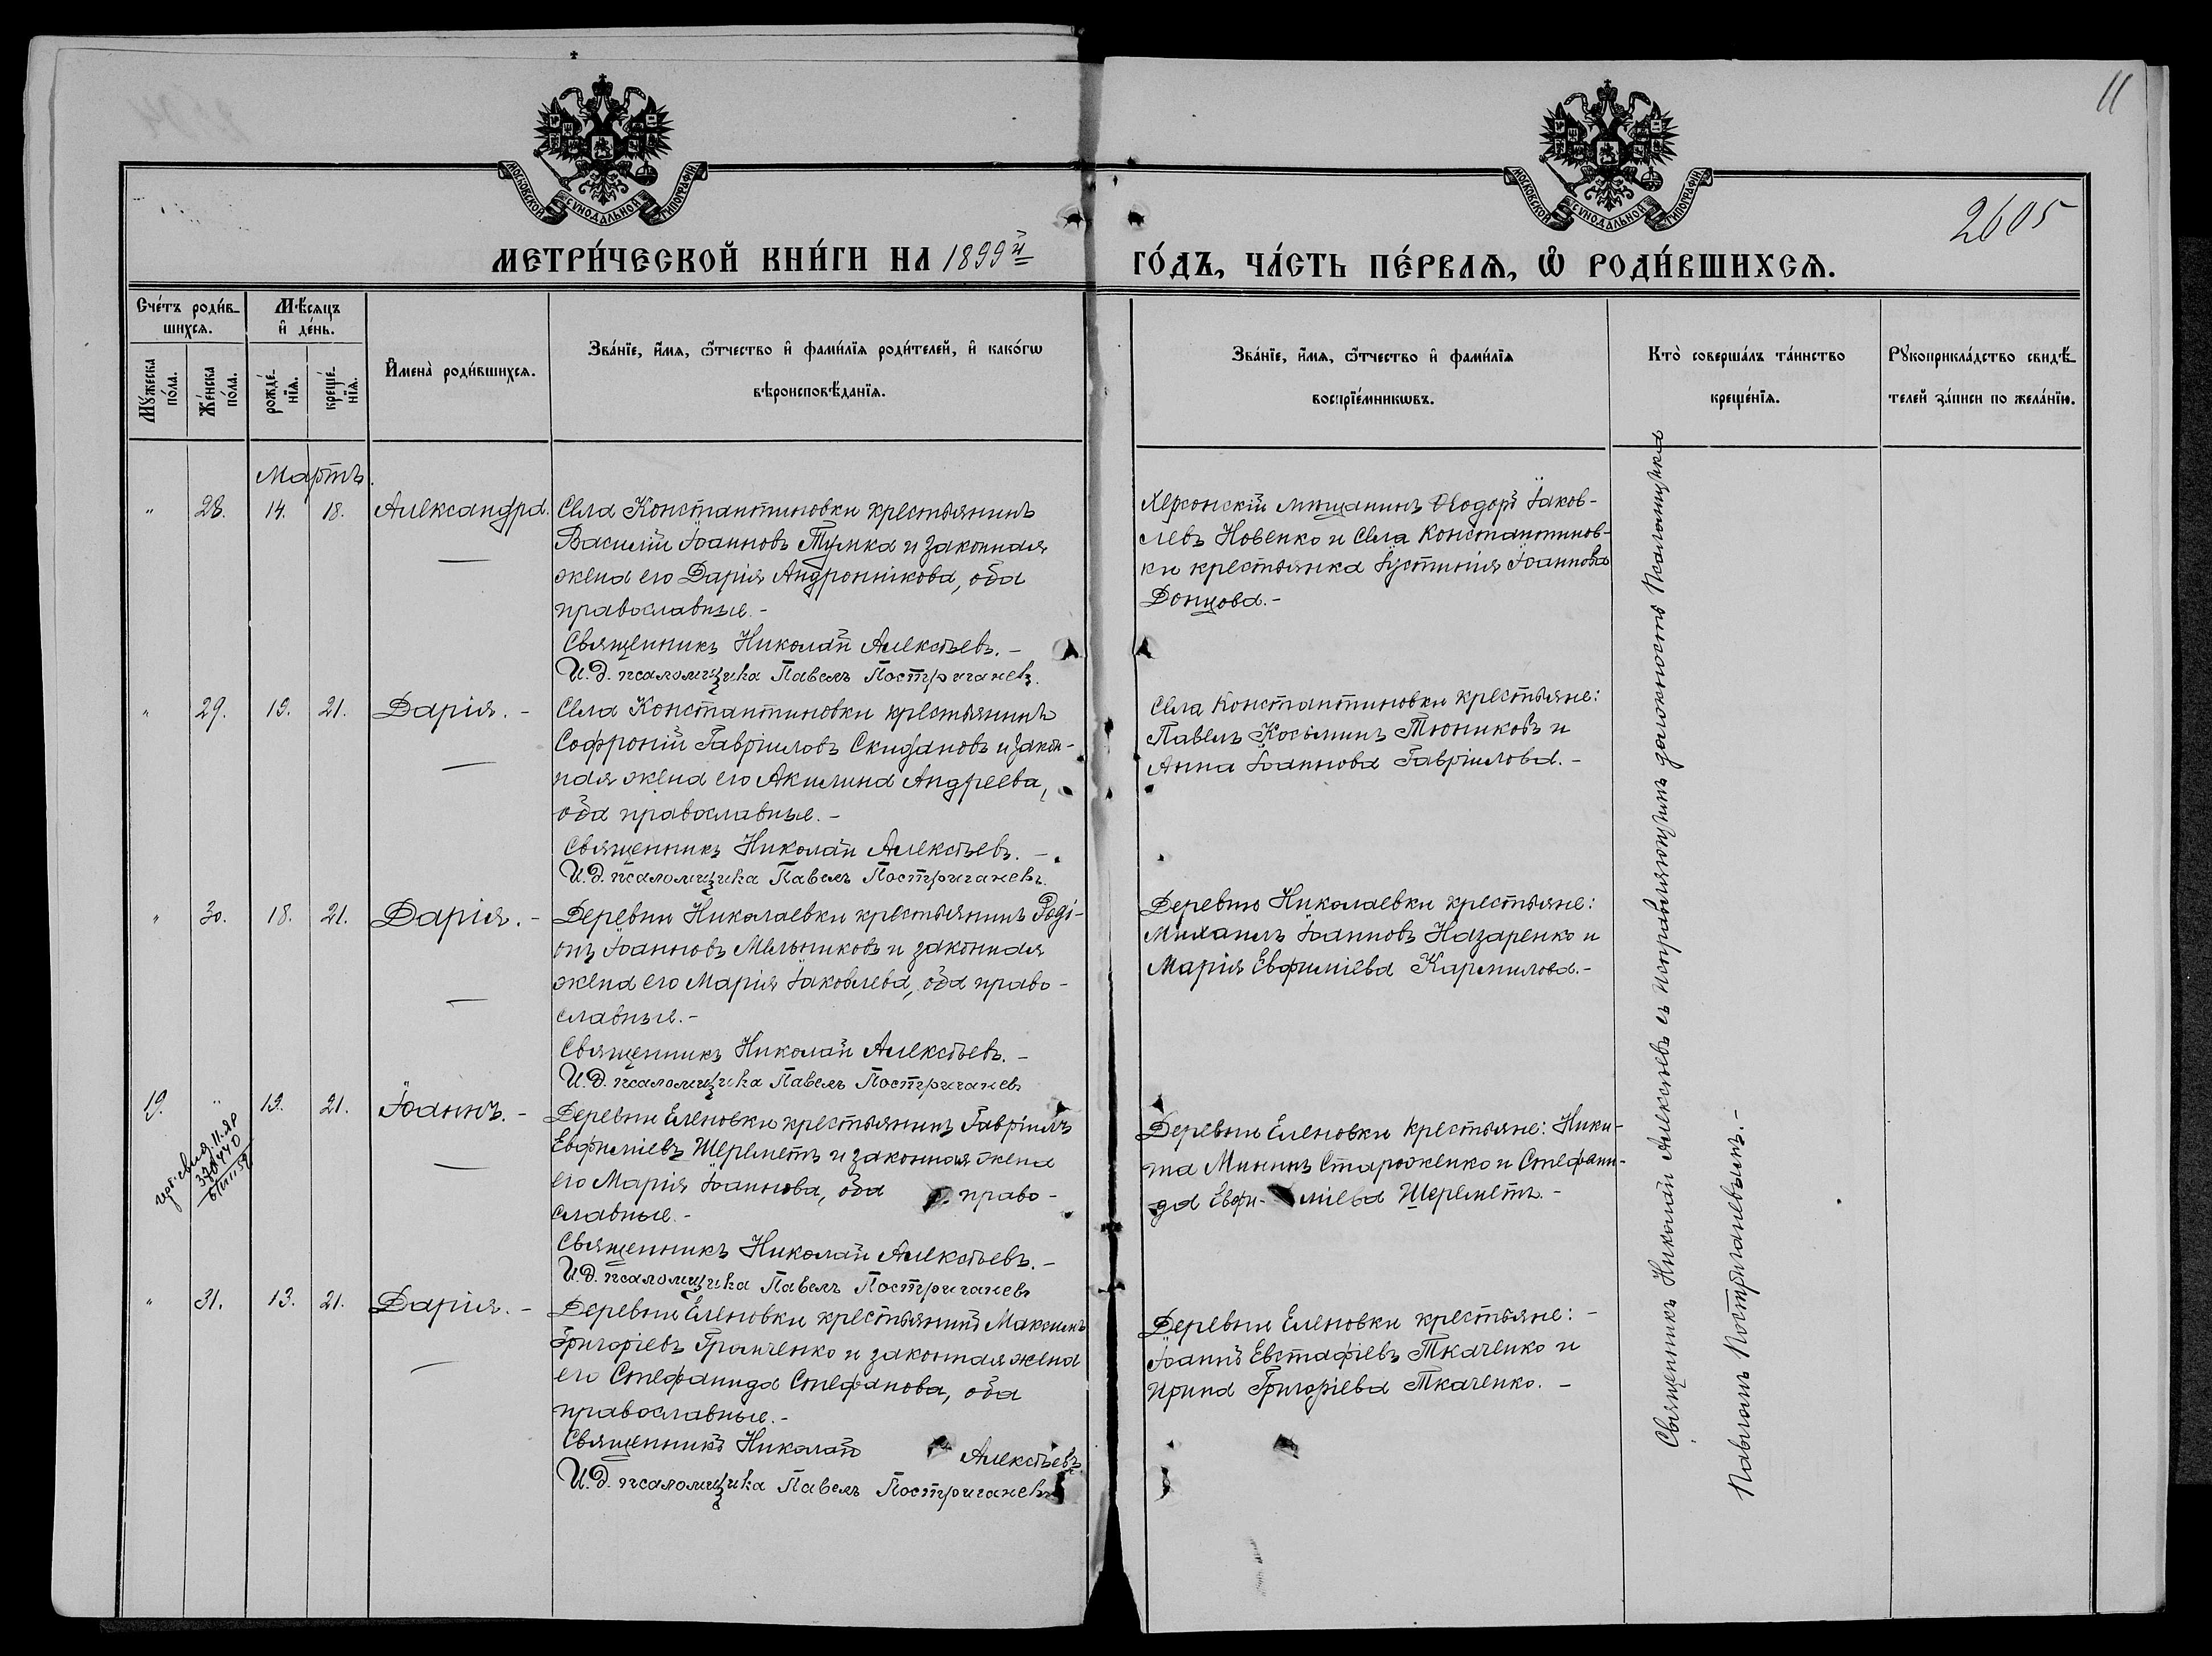 11
МОСКОВСКОЙ СѴНОДАЛЬНОЙ ТИПОГРАФІИ
МОСКОВСКОЙ СѴНОДАЛЬНОЙ ТИПОГРАФІИ
2605
МЕТРИ́ЧЕСКОЙ КНИ́ГИ НА 1899й
ГО́ДЪ, ЧА́СТЬ ПЕ́РВАѦ, Ѽ РОДИ́ВШИХСѦ.
Сче́тъ роди́в-
шихсѧ.
Мѣ́сяцъ
и҆ де́нь.
Мꙋ́жеска по́ла.
Же́нска по́ла.
рожде́-
нїѧ.
креще́-
нїѧ.
И҆мена̀ роди́вшихсѧ.
Зва́нїе, и҆́мѧ, ѻ҆́тчество и҆ фами́лїѧ роди́телей, и҆ како́гѡ
вѣроисповѣ́данїѧ.
Зва́нїе, и҆́мѧ, ѻ҆́тчество и҆ фами́лїѧ
воспрїе́мникѡвъ.
Кто̀ соверша́лъ та́инство
креще́нїѧ.
Рꙋкоприкла́дство свидѣ́-
телей за́писи по жела́нїю.
Мартъ.
" 28. 14. 18. Александра. Села Константиновки крестьянинъ
Василій Іоанновъ Тумка и законная
жена его Дарія Андроникова, оба
православные.-
Священникъ Николай Алексѣевъ.-
И.д. псаломщика Павелъ Постриганевъ.
Херсонскій мѣщанинъ Ѳеодоръ Іаков-
левъ Новенко и Села Константинов-
ки крестьянка Іустинія Іоаннова
Донцова.-
" 29. 19. 21. Дарія.- Села Константиновки крестьянинъ
Софроній Гавріиловъ Скидановъ и закон-
ная жена его Акилина Андреева,
оба православные.-
Священникъ Николай Алексѣевъ.-
И.д. псаломщика Павелъ Постриганевъ.
Села Константиновки крестьяне:
Павелъ Косьминъ Тюниковъ и
Анна Іоаннова Гавріилова.-
" 30. 18. 21. Дарія.- Деревни Николаевки крестьянинъ Роді-
онъ Іоанновъ Мельниковъ и законная
жена его Марія Іаковлева, оба право-
славные.-
Священникъ Николай Алексѣевъ.-
И.д. псаломщика Павелъ Постриганевъ
Деревни Николаевки крестьяне:
Михаилъ Іоанновъ Назаренко и
Марія Евфиміева Кармилова.-
19. " 19. 21. Іоаннъ.- Деревни Еленовки крестьянинъ Гавріилъ
Евфиміевъ Шереметъ и законная жена
его Марія Іоаннова, оба право-
славные.-
Священникъ Николай Алексѣевъ.-
И.д. псаломщика Павелъ Постриганевъ
Деревни Еленовки крестьяне: Ники-
та Мининъ Староженко и Стефани-
да Евфи- міева Шереметъ.-
" 31. 13. 21. Дарія.- Деревни Еленовки крестьянинъ Максимъ
Григоріевъ Гринченко и законная жена
его Стефанида Стефанова, оба
православные.-
Священникъ Николай Алексѣевъ
И.д. псаломщика Павелъ Постриганевъ
Деревни Еленовки крестьяне:-
Іоаннъ Евстафіевъ Ткаченко и
Ирина Григоріева Ткаченко.-
Священникъ Николай Алексѣевъ съ исправляющимъ должность Псаломщика
Павломъ Постриганевымъ.-